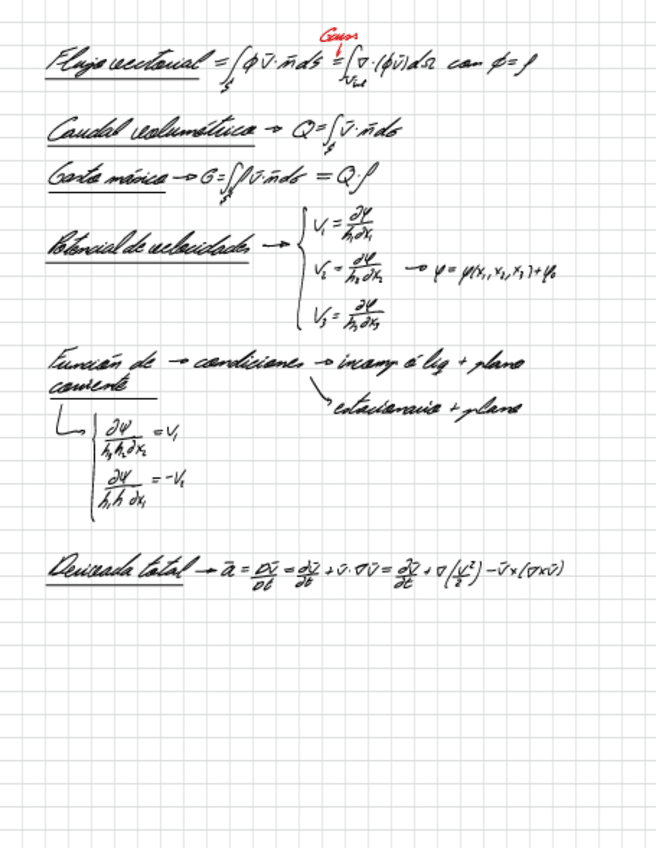 Gauss
Flujo vectorial = ∫_S ϕ v̄·n̄ ds = ∫_Vol ∇·(ϕv̄)dΩ con ϕ=ρ
Caudal volumétrico → Q=∫_S v̄·n̄ dσ
Gasto másico → G=∫_S ρ v̄·n̄ dσ = Q·ρ
Potencial de velocidades → { V₁ = ∂φ/h₁∂x₁
V₂ = ∂φ/h₂∂x₂ → φ = φ(x₁,x₂,x₃)+φ₀
V₃ = ∂φ/h₃∂x₃
Función de → condiciones → incomp ó liq + plano
corriente
estacionario + plano
∂ψ/h₃h₂∂x₂ = V₁
∂ψ/h₁h ∂x₁ = -V₂
Derivada total → ā = Dv̄/Dt = ∂v̄/∂t + v̄·∇v̄ = ∂v̄/∂t + ∇(v²/2) - v̄×(∇×v̄)